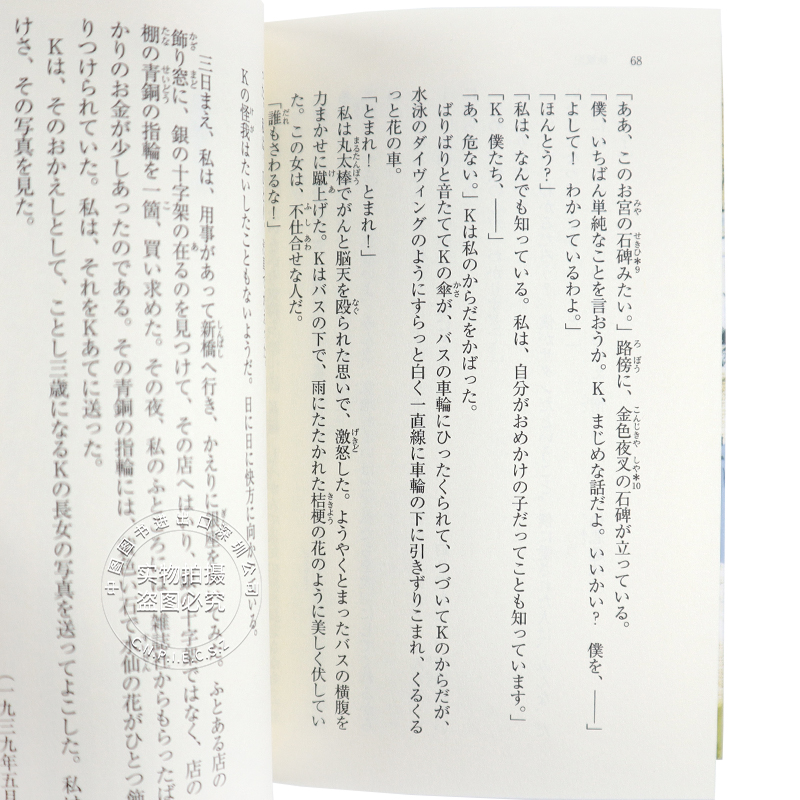 68
「ああ、このお宮の石碑みたい。」路傍に、金色夜叉の石碑が立っている。
「僕、いちばん単純なことを言おうか。K、まじめな話だよ。いいかい？　僕を、――」
「よして！　わかっているわよ。」
「ほんとう？」
「私は、なんでも知っている。私は、自分がおめかけの子だってことも知っています。」
「K。僕たち、――」
「あ、危ない。」Kは私のからだをかばった。
ばりばりと音たててKの傘が、バスの車輪にひったくられて、つづいてKのからだが、
水泳のダイヴィングのようにすらっと白く一直線に車輪の下に引きずりこまれ、くるくる
っと花の車。
「とまれ！　とまれ！」
私は丸太棒でがんと脳天を殴られた思いで、激怒した。ようやくとまったバスの横腹を
力まかせに蹴上げた。Kはバスの下で、雨にたたかれた桔梗の花のように美しく伏してい
た。この女は、不仕合せな人だ。
「誰もさわるな！」
Kの怪我はたいしたこともないようだ。日に日に快方に向か
いる。
三日まえ、私は、用事があって新橋へ行き、かえりに銀座を
てみ
。ふとある店の
飾り窓に、銀の十字架の在るのを見つけて、その店へは
り、
十字架ではなく、店の
棚の青銅の指輪を一箇、買い求めた。その夜、私のふところ
雑誌
からもらったば
かりのお金が少しあったのである。その青銅の指輪には
色い石で水仙の花がひとつ飾
りつけられていた。私は、それをKあてに送った。
Kは、そのおかえしとして、ことし三歳になるKの長女の写真を送ってよこした。私は
けさ、その写真を見た。
（一九三九年五月
中国图书进出口深圳公司
实物拍摄
盗图必究